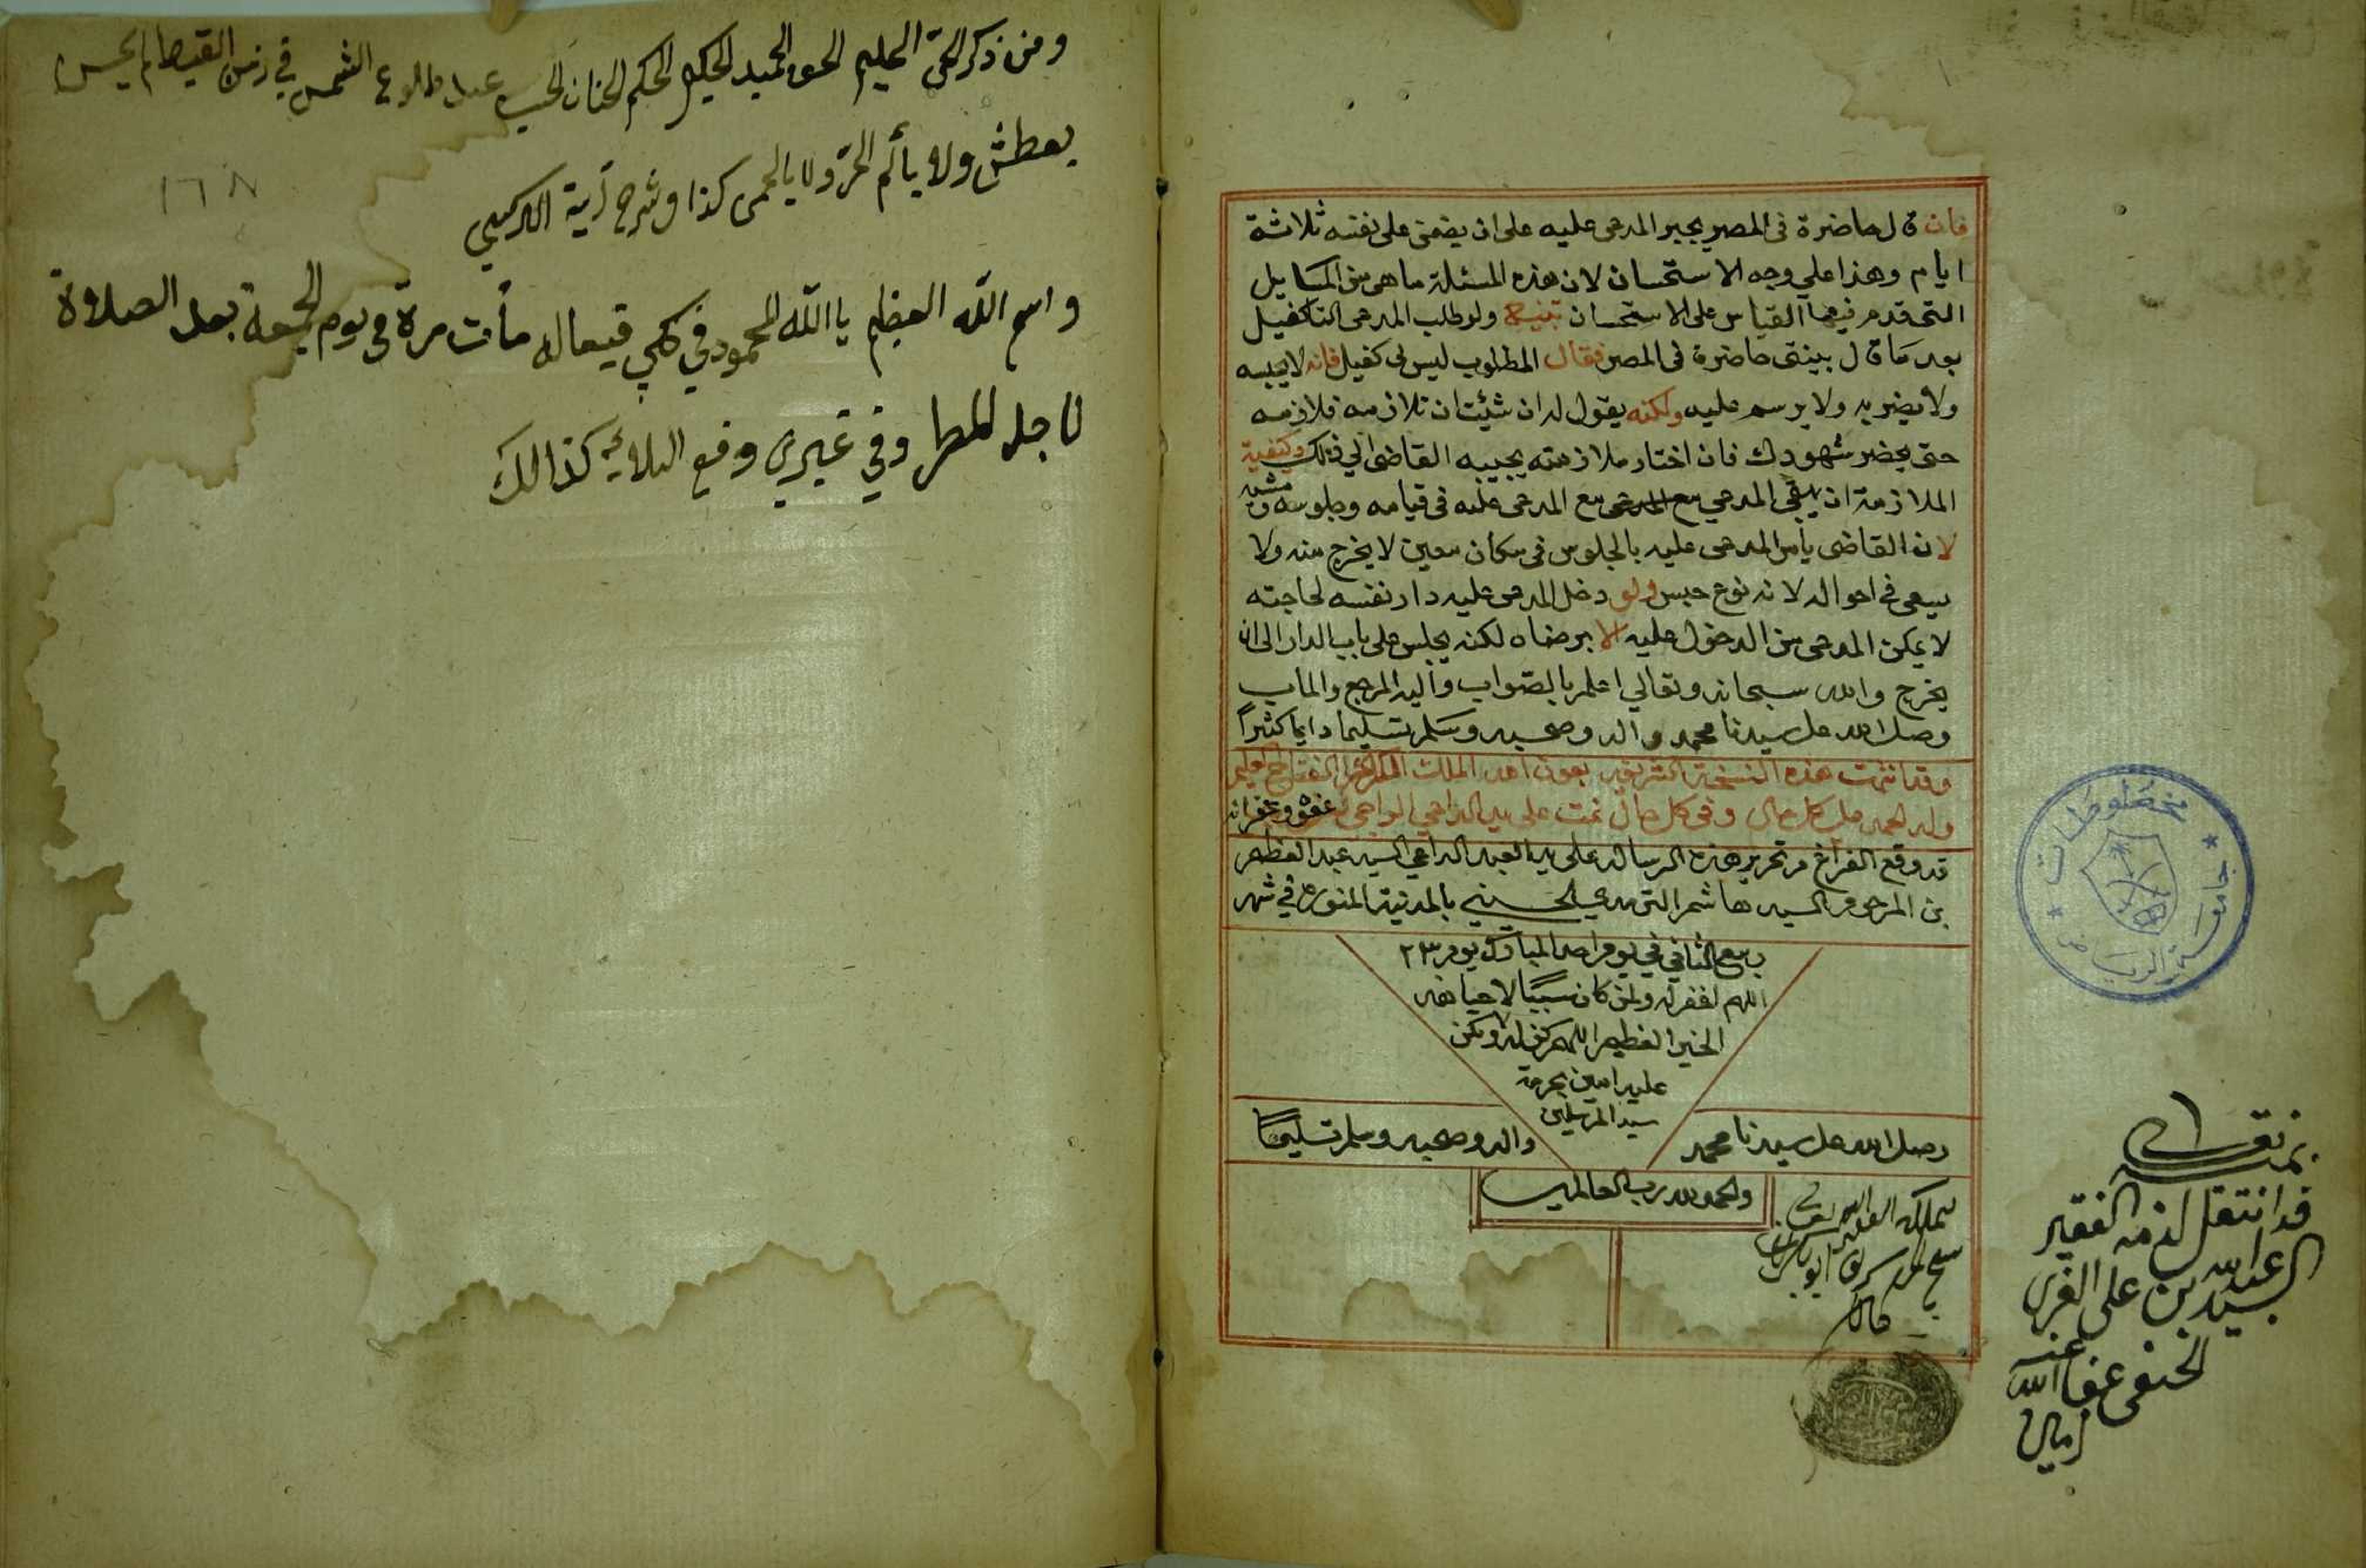 فان قال حاضرة فى المصر يجبر المدعى عليه على ان يضمن على نفسه ثلاثة
ايام وهذا علي وجه الاستحسان لان هذه المسئلة ما هى من المسايل
التى قدم فيها القياس على الاستحسان تنبيه ولو طلب المدعى التكفيل
بعد ما قال بينتى حاضرة فى المصر فقال المطلوب ليس لى كفيل فانه لا يحبسه
ولا يضربه ولا يرسم عليه ولكنه يقول له ان شئت ان تلازمه فلازمه
حتى يحضر شهودك فان اختار ملازمته يجيبه القاضى الي ذلك وكيفية
الملازمة ان يبقى المدعي مع المدعى مع المدعى عليه فى قيامه وجلوسه ومشيه
لان القاضى يأمر المدعى عليه بالجلوس فى مكان معين لا يخرج منه ولا
يسعى فى احواله لانه نوع حبس ولو دخل المدعى عليه دار نفسه لحاجته
لا يمكن المدعى من الدخول عليه الا برضاه لكنه يجلس على باب الدار الى ان
يخرج والله سبحانه وتعالي اعلم بالصواب واليه المرجع والماب
وصلى الله على سيدنا محمد واله وصحبه وسلم تسليما دايما كثيراً
وقد تمت هذه النسخة الشريفة بعون الله الملك
وله الحمد على كل حال وفى كل حال تمت على يد الداعي الراجى عفوه وغفرانه
قد وقع الفراغ من تحرير هذه الرساله على يد العبد الداعي السيد عبد العظيم
بن المرحوم السيد هاشم الحسيني بالمدينة المنوره في شهر
ربيع الثاني في يوم المبارك يوم ٢٣
اللهم اغفر له ولمن كان سببًا لاحيا هذه
الخير العظيم اللهم كن له ولا تكن
عليه امين بحرمة
سيد المرسلين
وصلى الله على سيدنا محمد
واله وصحبه وسلم تسليمًا
والحمد لله رب العالمين
مخطوطات
جامعة الرياض
قد انتقل لذمة الفقير
السيد عبدالله بن على
الحنفى عفا الله عنه
امين
ومن ذكر الحىّ الحليم الحق الحميد الحكيم الحكم الحنان عند طلوع الشمس في زمن القيظ لم يحس
يعطش ولا يألم الحرّ ولا بالحمى كذا وشرح آية الكرسي
١٦٨
واسم اللّه العظيم يا اللّه المحمود في كل فعاله مأت مرة فى يوم الجمعة بعد الصلاة
لاجل المطر وفي غيره كذالك